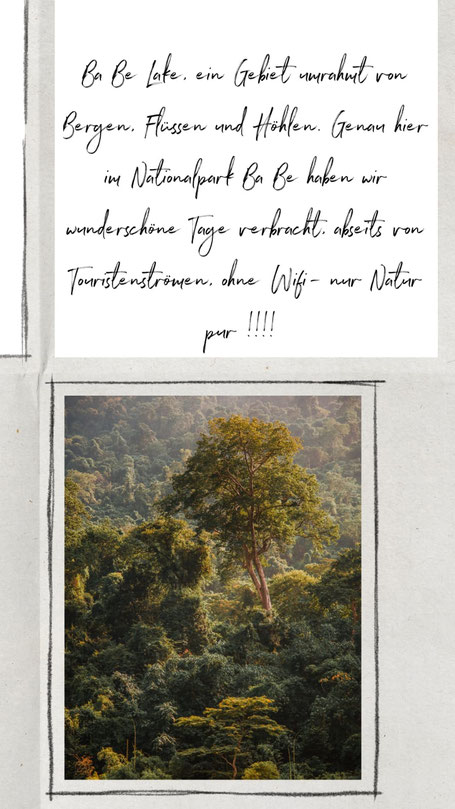 Ba Be Lake, ein Gebiet umrahmt von
Bergen, Flüssen und Höhlen. Genau hier
im Nationalpark Ba Be haben wir
wunderschöne Tage verbracht, abseits von
Touristenströmen, ohne Wifi - nur Natur
pur !!!!